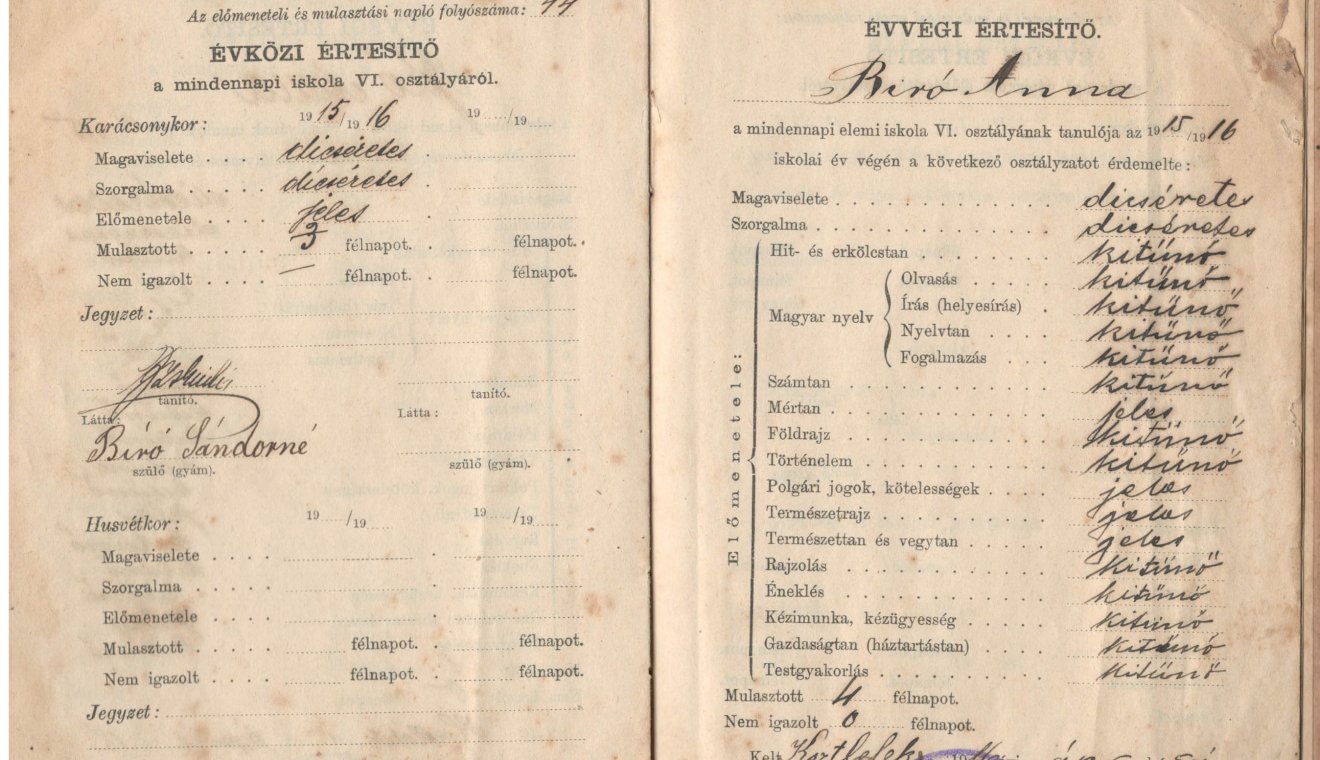 Az előmeneteli és mulasztási napló folyószáma: 44
ÉVKÖZI ÉRTESÍTŐ
a mindennapi iskola VI. osztályáról.
Karácsonykor: 1915/1916 19 /19
Magaviselete . . . . dicséretes
Szorgalma . . . . dicséretes
Előmenetele . . . . jeles
Mulasztott . . . . 3 félnapot. . félnapot.
Nem igazolt . . . . — félnapot. . félnapot.
Jegyzet:
tanító. tanító.
Látta: Látta:
Bíró Sándorné
szülő (gyám). szülő (gyám).
Husvétkor: 19 /19 19 /19
Magaviselete . . . .
Szorgalma . . . .
Előmenetele . . . .
Mulasztott . . . . félnapot. . félnapot.
Nem igazolt . . . . félnapot. . félnapot.
Jegyzet:
ÉVVÉGI ÉRTESÍTŐ.
Biró Anna
a mindennapi elemi iskola VI. osztályának tanulója az 1915/1916
iskolai év végén a következő osztályzatot érdemelte:
Magaviselete . . . . dicséretes
Szorgalma . . . . dicséretes
Előmenetele:
Hit- és erkölcstan . . . . kitünő
Magyar nyelv
Olvasás . . . . kitünő
Írás (helyesírás) . . kitünő
Nyelvtan . . . . kitünő
Fogalmazás . . . . kitünő
Számtan . . . . kitünő
Mértan . . . . jeles
Földrajz . . . . kitünő
Történelem . . . . kitünő
Polgári jogok, kötelességek . . . . jeles
Természetrajz . . . . jeles
Természettan és vegytan . . . . jeles
Rajzolás . . . . kitünő
Éneklés . . . . kitünő
Kézimunka, kézügyesség . . . . kitünő
Gazdaságtan (háztartástan) . . . . kitünő
Testgyakorlás . . . . kitünő
Mulasztott 4 félnapot.
Nem igazolt 0 félnapot.
Kelt